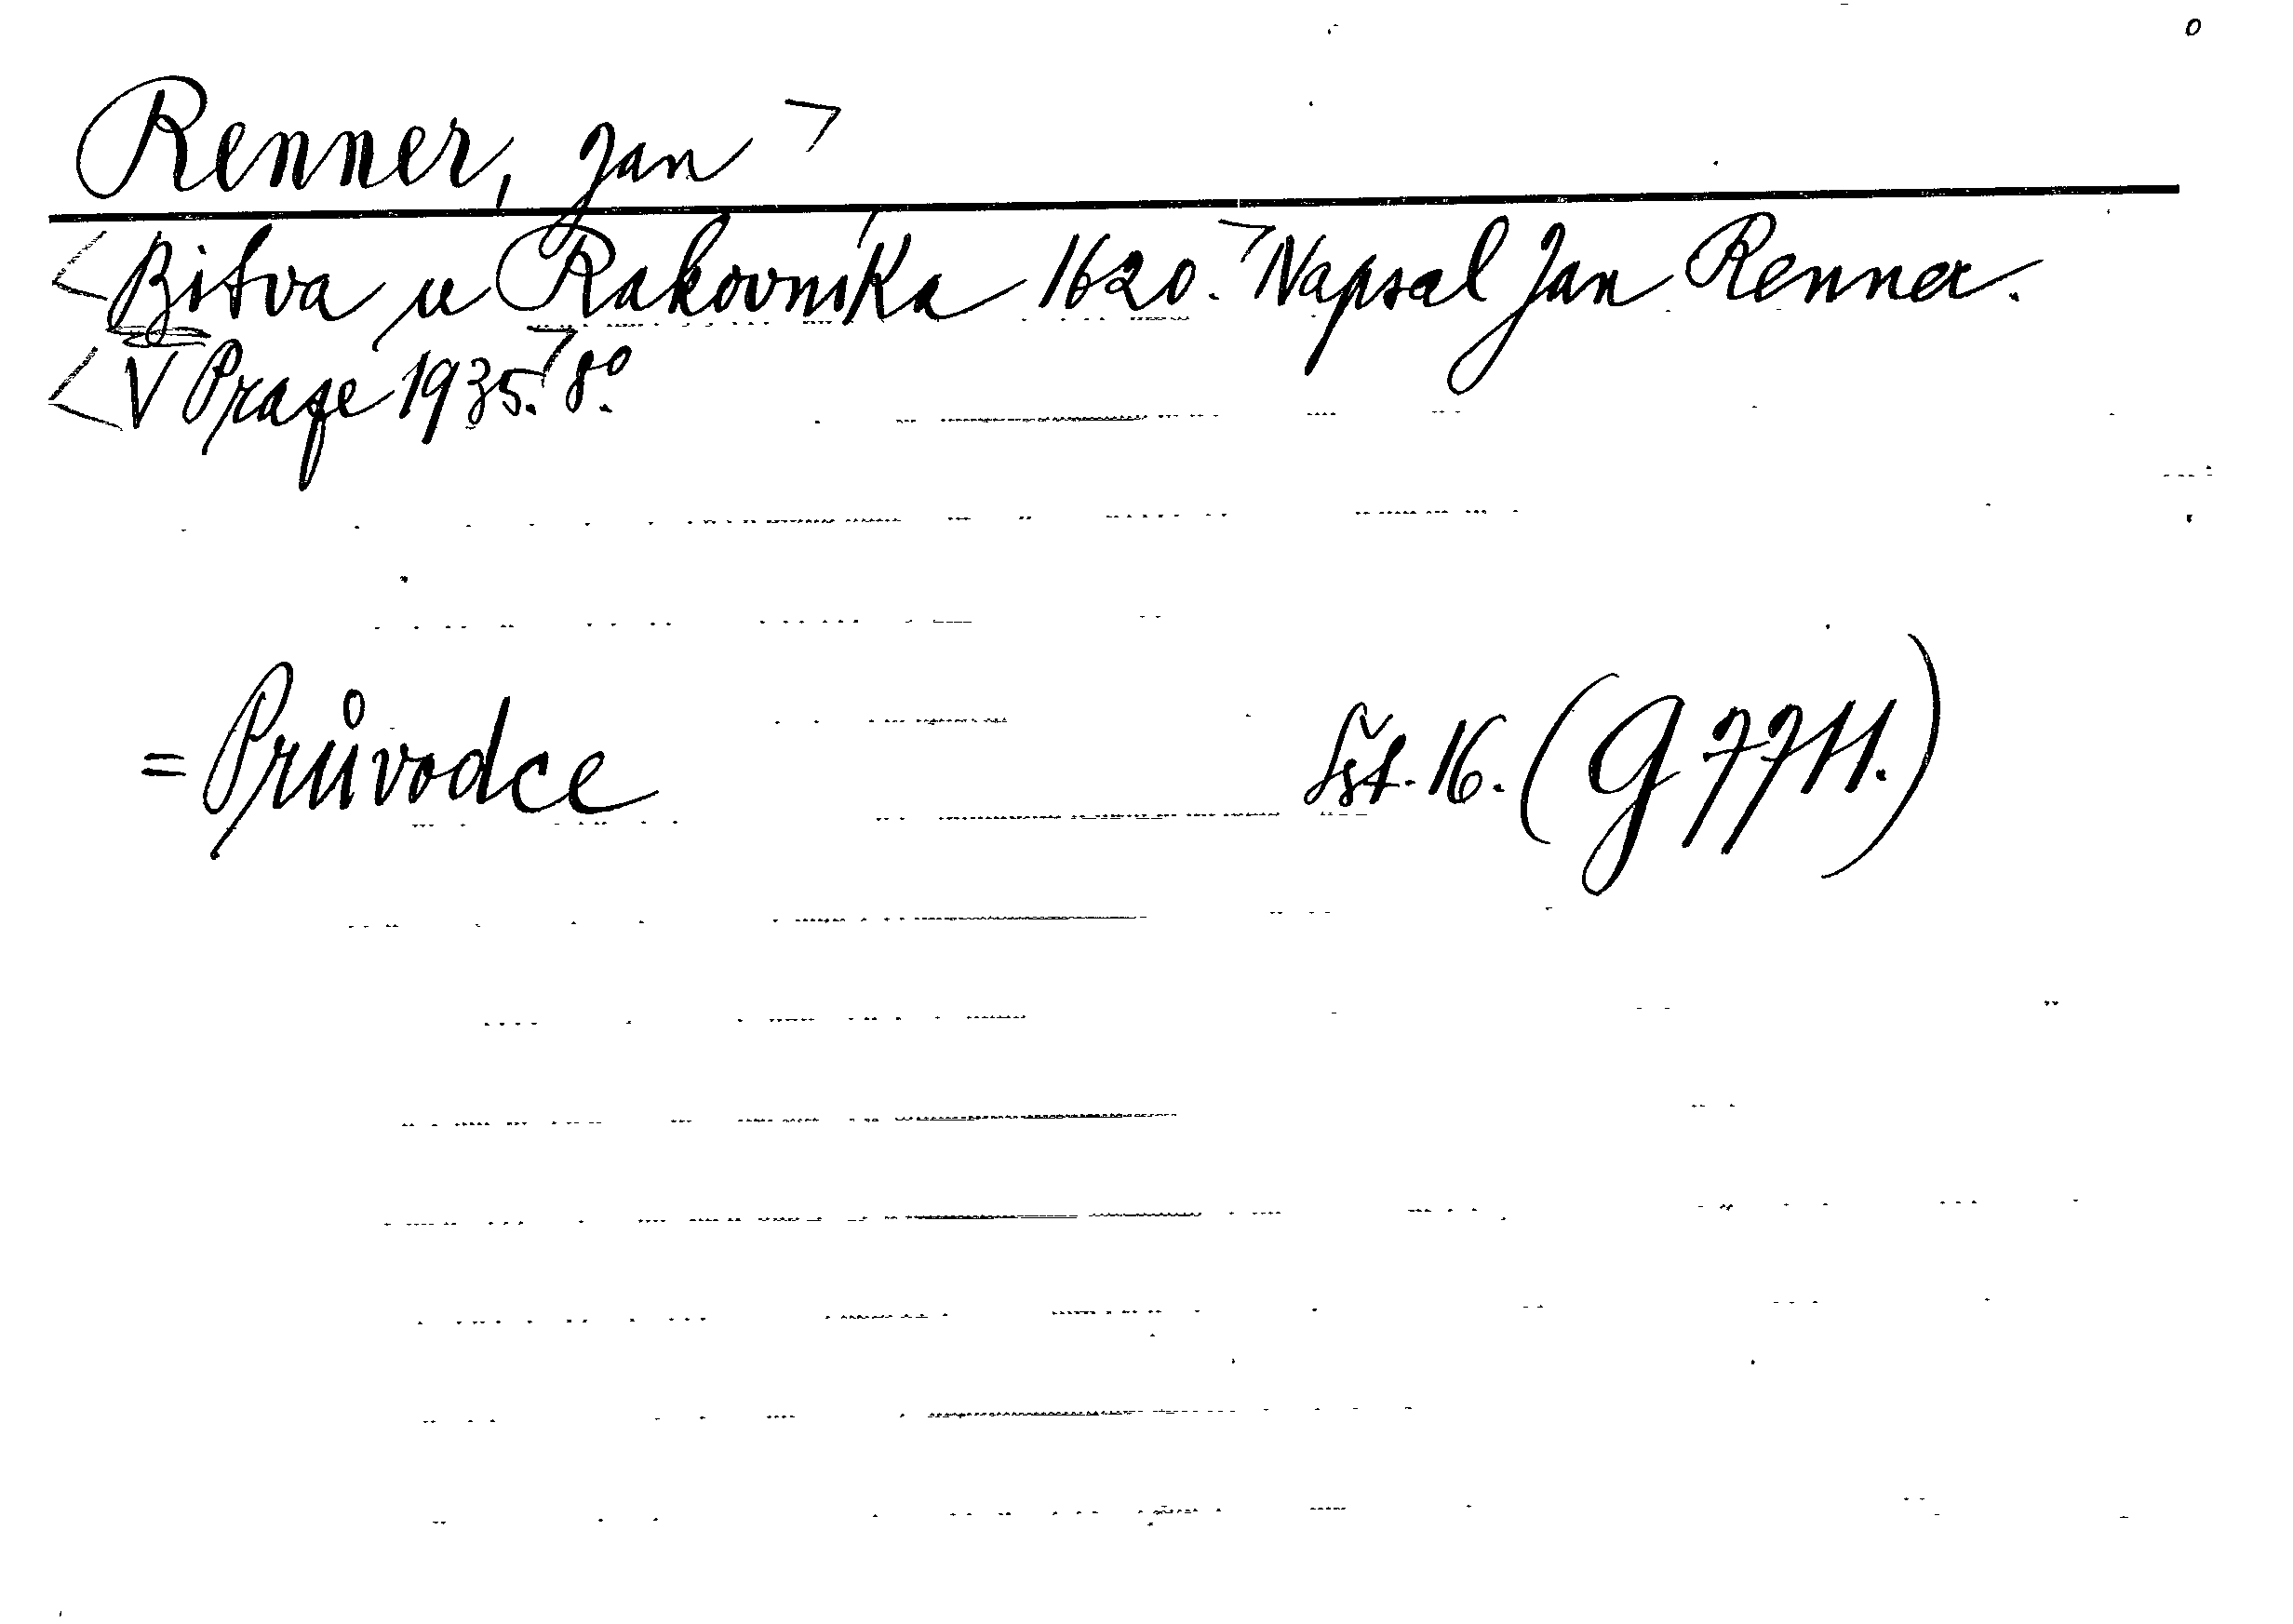 Renner, Jan
Bitva u Rakovníka 1620. Napsal Jan Renner.
V Praze 1935. 8º.
= Průvodce 16. (G 7711.)